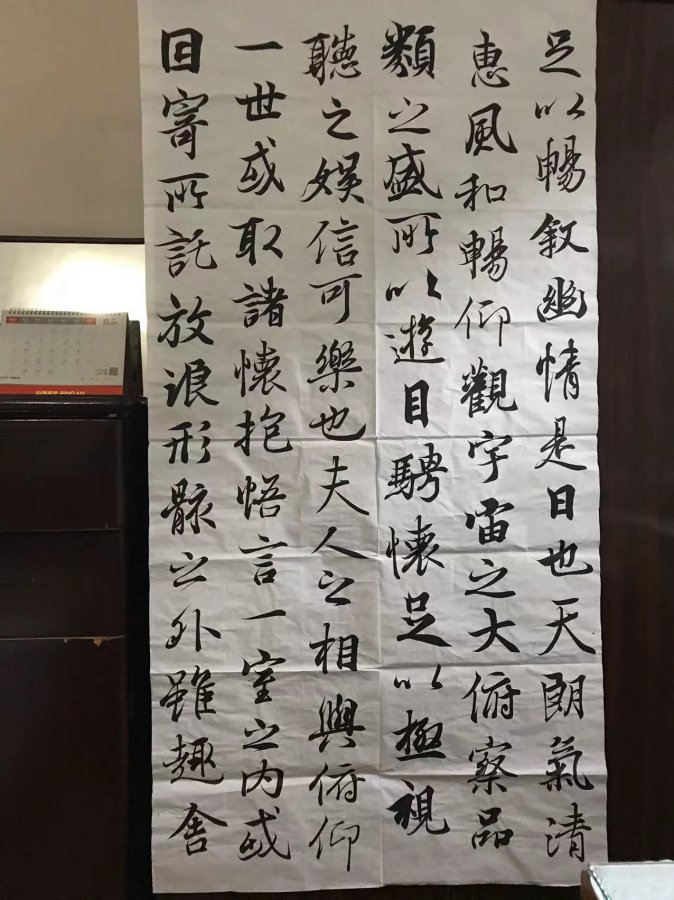 足以暢敘幽情是日也天朗氣清
惠風和暢仰觀宇宙之大俯察品
類之盛所以遊目騁懷足以極視
聽之娛信可樂也夫人之相與俯仰
一世或取諸懷抱悟言一室之內或
因寄所託放浪形骸之外雖趣舍
中国平安 PING AN